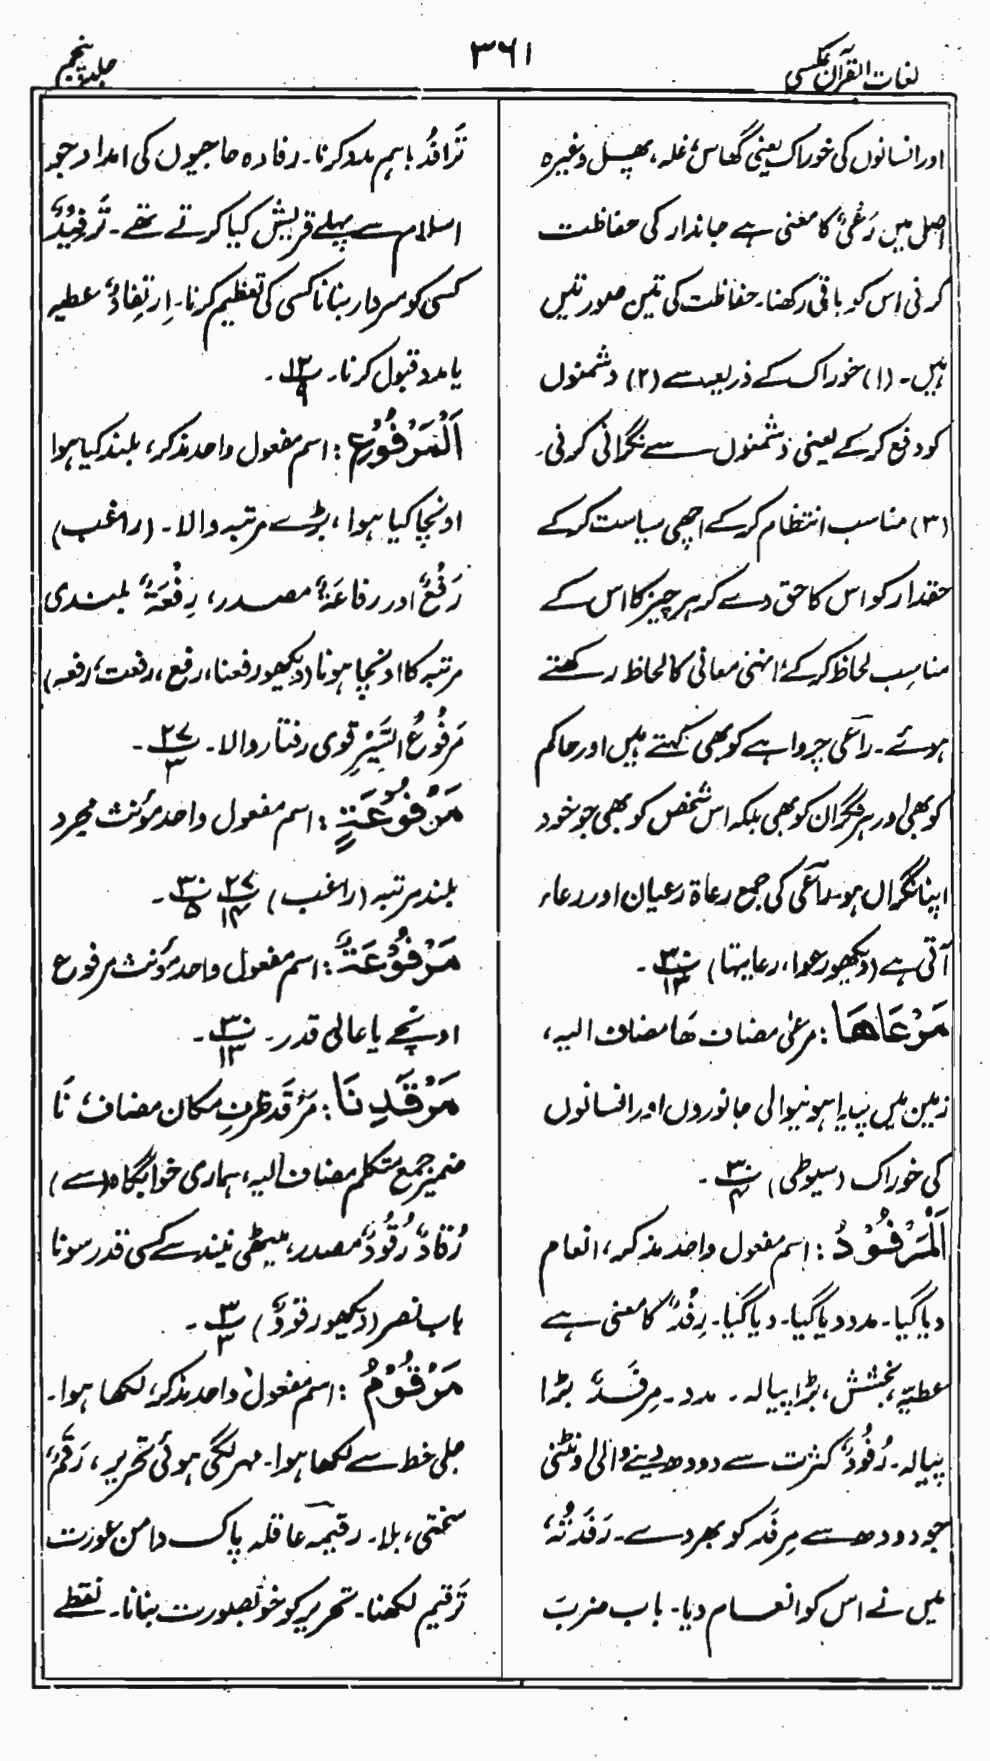 لغات القرآن عکسی
۳۶۱
جلد پنجم
اور انسانوں کی خوراک یعنی گھاس، غلہ، پھل وغیرہ
اصل میں رَعْیٌ کا معنی ہے جاندار کی حفاظت
کرنی اس کو باقی رکھنا۔ حفاظت کی تین صورتیں
ہیں۔ (۱) خوراک کے ذریعہ سے (۲) دشمنوں
کو دفع کر کے یعنی دشمنوں سے نگرانی کرنی۔
(۳) مناسب انتظام کر کے اچھی سیاست کر کے
حقدار کو اس کا حق دے کر ہر چیز کا اس کے
مناسب لحاظ کر کے، انہی معانی کا لحاظ رکھتے
ہوئے۔ راعی چرواہے کو بھی کہتے ہیں اور حاکم
کو بھی اور ہر نگران کو بھی بلکہ اس شخص کو بھی جو خود
اپنا نگراں ہو۔ راعی کی جمع رعاۃ رعیان اور رعاء
آتی ہے (دیکھو رعوا، رعایتہا) ۳۰/۱۳۔
مَرْعَاھَا : مرعٰی مضاف ھَا مضاف الیہ،
زمین میں پیدا ہونیوالی جانوروں اور انسانوں
کی خوراک (سیوطی) ۳۰/۴۔
اَلْمَرْفُوْدُ : اسم مفعول واحد مذکر، انعام
دیا گیا۔ مدد دیا گیا۔ دیا گیا۔ رِفْدٌ کا معنی ہے
عطیّہ، بخشش، بڑا پیالہ۔ مدد۔ مِرفَدٌ بڑا
پیالہ۔ رُفُوْدٌ کثرت سے دودھ دینے والی اونٹنی
جو دودھ سے مِرفَد کو بھر دے۔ رَفَدتُہٗ،
میں نے اس کو انعام دیا۔ باب ضربَ
تَرَافُد باہم مدد کرنا۔ رفادہ حاجیوں کی امداد جو
اسلام سے پہلے قریش کیا کرتے تھے۔ تَرفِیْدٌ
کسی کو سردار بنانا کسی کی تعظیم کرنا۔ اِرتِفادٌ عطیہ
یا مدد قبول کرنا۔ ۱۲/۹۔
اَلْمَرْفُوْعِ : اسم مفعول واحد مذکر، بلند کیا ہوا
اونچا کیا ہوا، بڑے مرتبہ والا۔ (راغب)
رَفْعٌ اور رفاعَۃٌ مصدر، رِفْعَۃٌ بلندی
مرتبہ کا اونچا ہونا (دیکھو رفعنا، رفع، رفعت، رفعہ)
مَرفُوعُ السَّیْرِ قوی رفتار والا۔ ۲۷/۳۔
مَرْفُوْعَۃٍ : اسم مفعول واحد مؤنث مجرد
بلند مرتبہ (راغب) ۲۷/۱۴ ۳۰/۵۔
مَرْفُوْعَۃٌ : اسم مفعول واحد مؤنث مرفوع
اونچے یا عالی قدر۔ ۳۰/۱۳۔
مَرْقَدِنَا : مَرْقَد ظرفِ مکان مضاف، نَا
ضمیر جمع متکلم مضاف الیہ، ہماری خوابگاہ (سے)
رُقادٌ، رُقُودٌ مصدر، میٹھی نیند سے کسی قدر سونا
باب نصر (دیکھو رقودٌ) ۲۳/۳۔
مَرْقُوْمٌ : اسم مفعول واحد مذکر، لکھا ہوا۔
جلی خط سے لکھا ہوا۔ مہر لگی ہوئی تحریر، رَقْمٌ
سختی، بلا۔ رقیمہ عاقلہ پاک دامن عورت
تَرقیم لکھنا۔ تحریر کو خوبصورت بنانا۔ نقطے